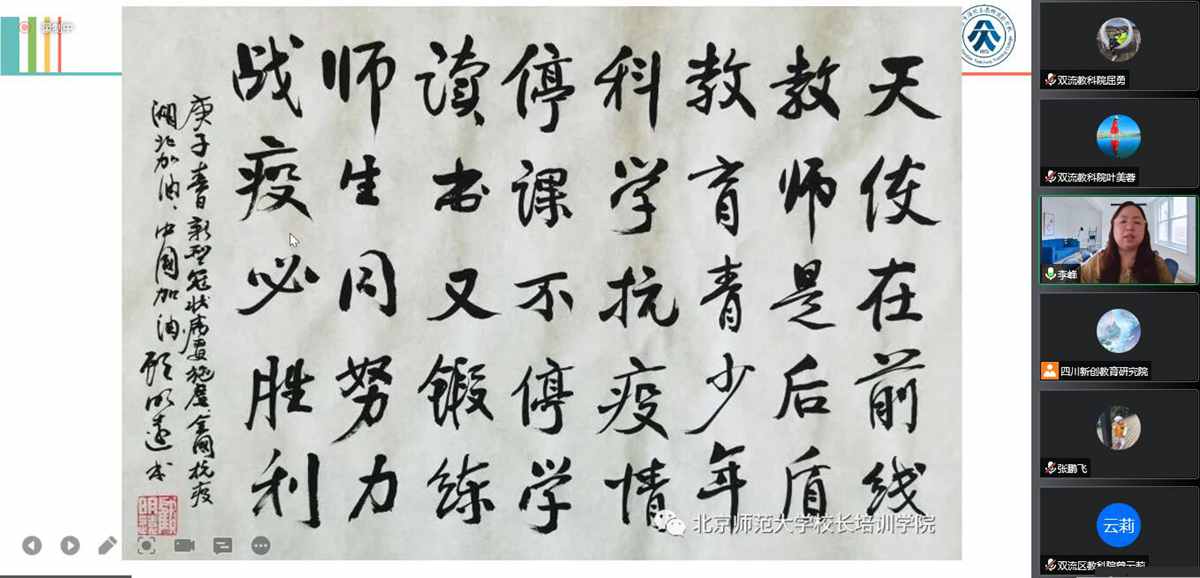 录制中
天使在前线
教师是后盾
教育青少年
科学抗疫情
停课不停学
读书又锻练
师生同努力
战疫必胜利
庚子春新型冠状病毒施虐全国抗疫
湖北加油、中国加油 顾明远书
北京师范大学校长培训学院
双流教科院屈勇
双流教科院叶美蓉
李峰
四川新创教育研究院
张鹏飞
云莉
双流区教科院曾云莉